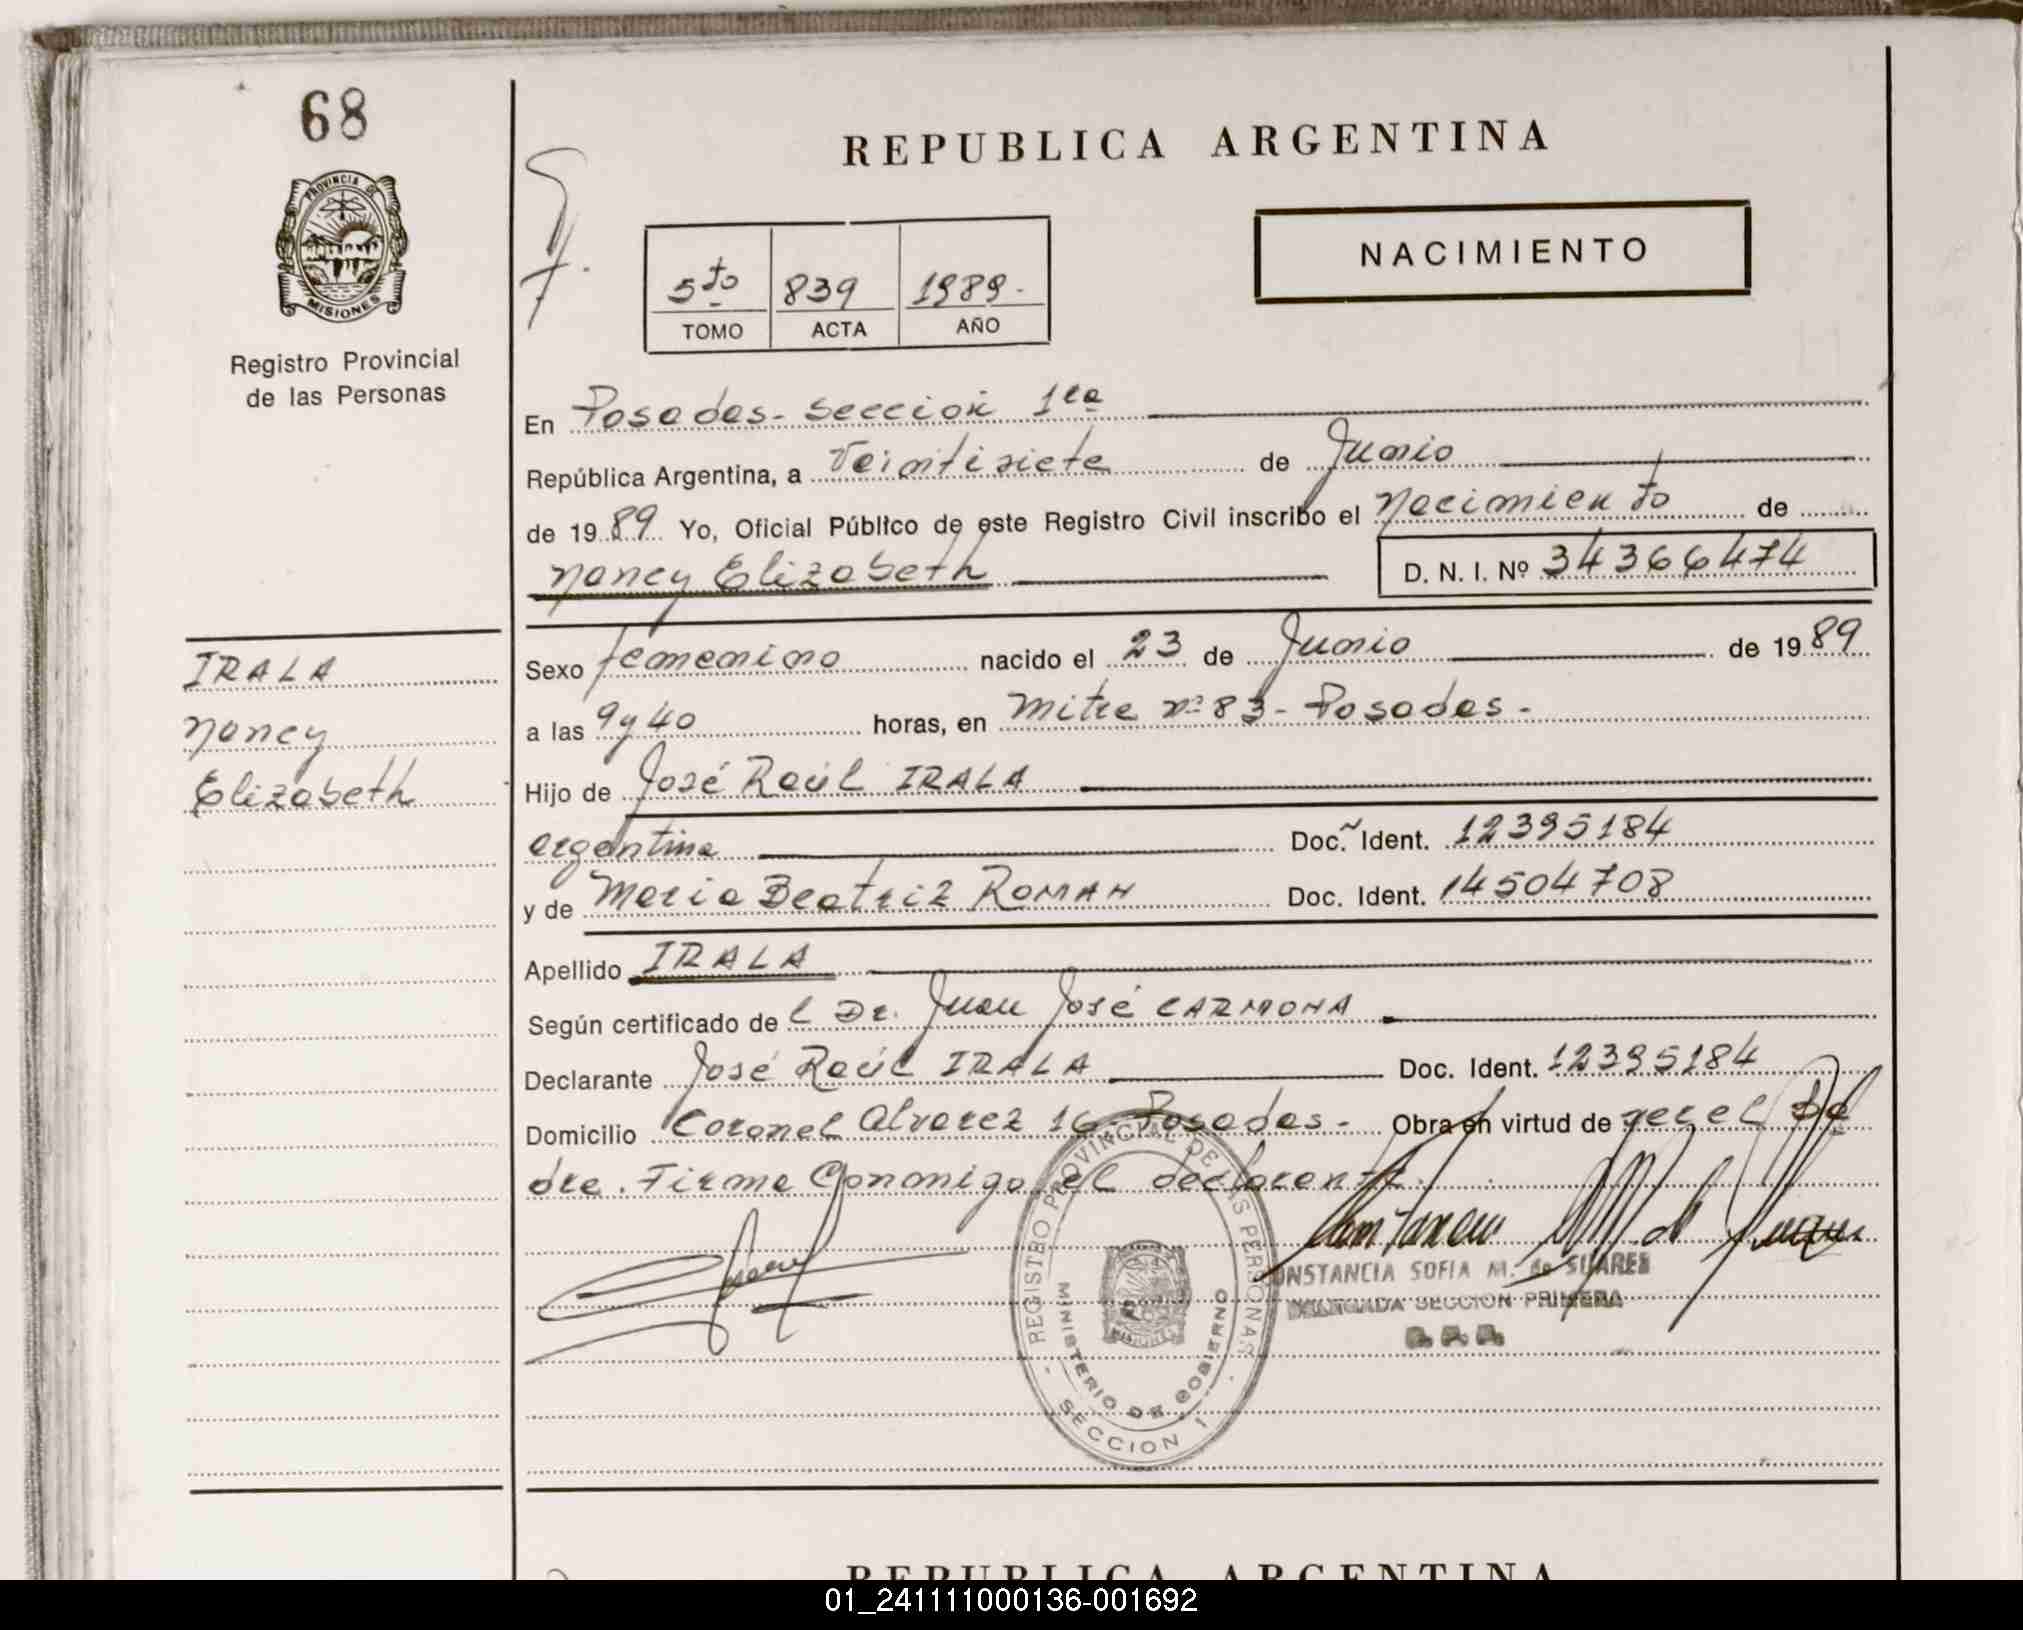 68
PROVINCIA DE
MISIONES
Registro Provincial
de las Personas
REPUBLICA ARGENTINA
NACIMIENTO
5to 839 1989.-
TOMO ACTA AÑO
En Posadas - Sección 1ra
República Argentina, a Veintisiete de Junio
de 1989 Yo, Oficial Público de este Registro Civil inscribo el Nacimiento de
Nancy Elizabeth D. N. I. Nº 34366474
IRALA
Nancy
Elizabeth
Sexo femenino nacido el 23 de Junio de 1989
a las 9 y 40 horas, en Mitre nº 83 - Posadas -
Hijo de José Raúl IRALA
argentina Doc. Ident. 12395184
y de Maria Beatriz ROMAN Doc. Ident. 14504708
Apellido IRALA
Según certificado del Dr. Juan José CARMONA
Declarante José Raúl IRALA Doc. Ident. 12395184
Domicilio Coronel Alvarez 16 - Posadas - Obra en virtud de ser el pa
dre. Firma Conmigo el declarante.
REGISTRO PROVINCIAL DE LAS PERSONAS
MINISTERIO DE GOBIERNO
MISIONES
SECCION 1
ONSTANCIA SOFIA M. de SUARES
SECCION PRIMERA
REPUBLICA ARGENTINA
01_241111000136-001692